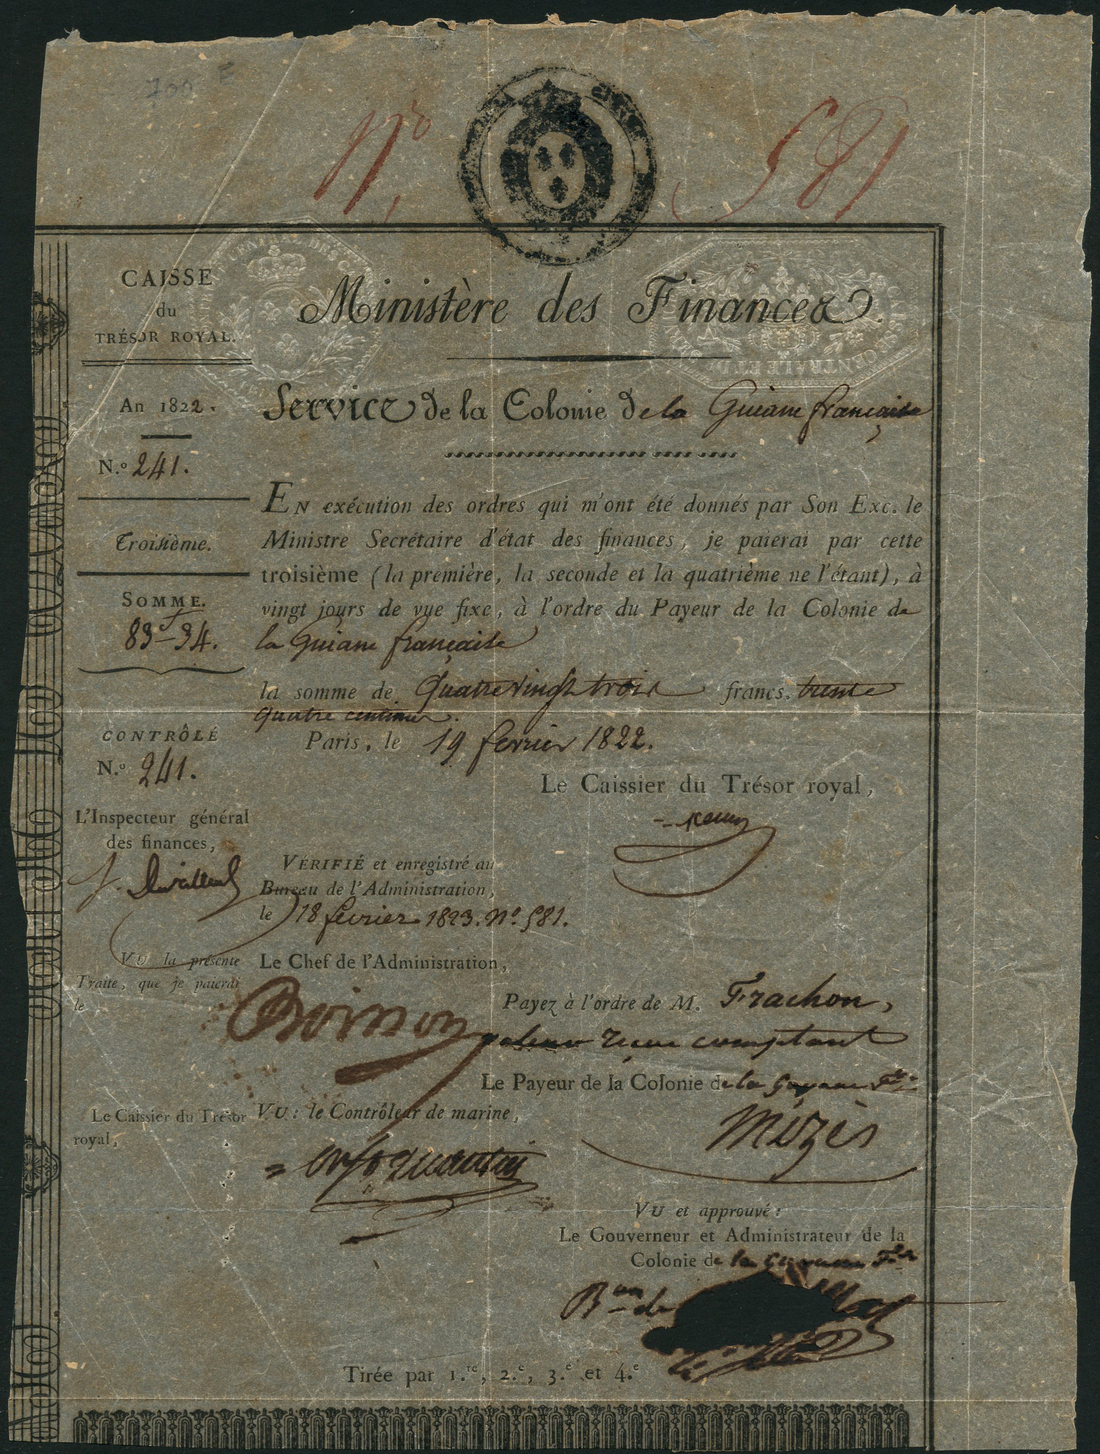 700 E
N.o 581
CAISSE
du
TRÉSOR ROYAL.
Ministère des Finances
An 1822.
Service de la Colonie de la Guiane française
N.o 241.
EN exécution des ordres qui m'ont été donnés par Son Exc. le
Troisième.
Ministre Secrétaire d'état des finances, je paierai par cette
troisième (la première, la seconde et la quatrième ne l'étant), à
SOMME.
vingt jours de vue fixe, à l'ordre du Payeur de la Colonie de
83f-34.
la Guiane française
la somme de Quatre vingt trois francs. trente
quatre centimes.
CONTRÔLÉ
Paris, le 19 fevrier 1822.
N.o 241.
Le Caissier du Trésor royal,
L'Inspecteur général
des finances,
VÉRIFIÉ et enregistré au
Bureau de l'Administration,
le 18 fevrier 1823. No. 581.
VU la présente
Le Chef de l'Administration,
Traite, que je paierai
le
Payez à l'ordre de M. Frachon,
Boisson
valeur reçue comptant
Le Payeur de la Colonie de la Guyane Fse
Le Caissier du Trésor
royal,
VU: le Contrôleur de marine,
Mézès
VU et approuvé:
Le Gouverneur et Administrateur de la
Colonie de la Guyane Fse
Bon de
Tirée par 1.re, 2.e, 3.e et 4.e